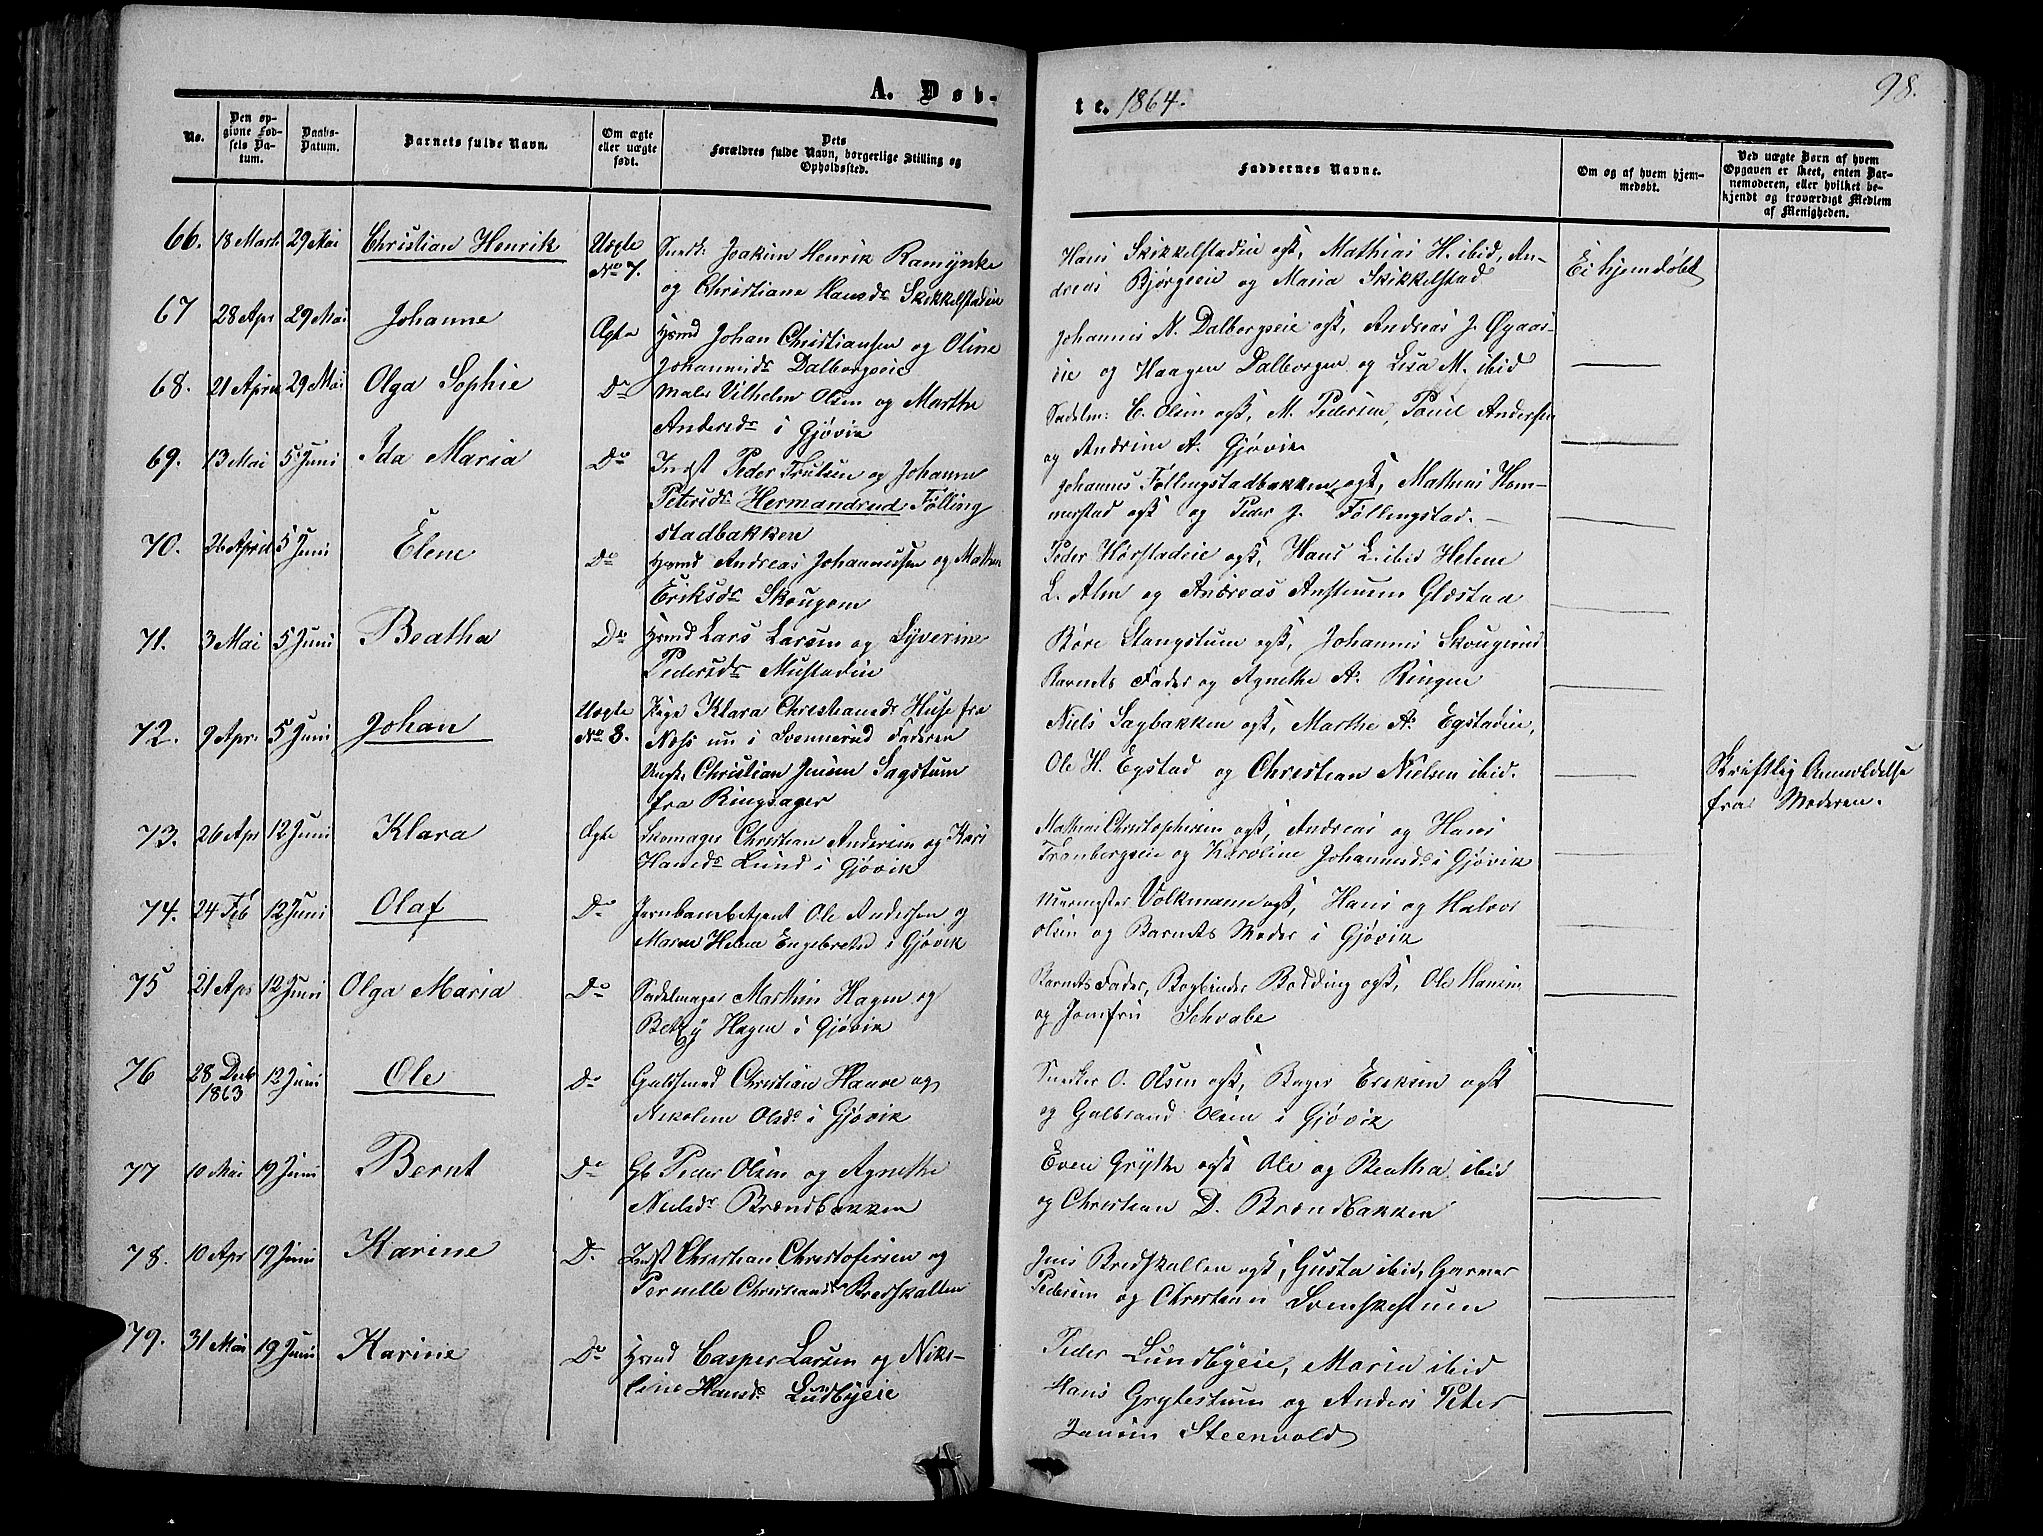 98.
A. Døb-
te. 1864.
No.
Den op-
givne Fød-
sels Da-
tum.
Daabs-
Datum.
Barnets fulde Navn.
Om ægte
eller uægte
født.
Dets
Forældres fulde Navn, borgerlige Stilling og
Opholdssted.
Faddernes Navne.
Om og af hvem hjem-
medøbt.
Ved uægte Børn af hvem
Opgaven er skeet, enten Bar-
nemoderen, eller hvilket be-
kjendt og troværdigt Medlem
af Menigheden.
66. 18 Marts 29 Mai Christian Henrik Uægte
No 7.
Joakim Henrik Ramynke
og Christiane Hansdr Skikkelstadeie
Hans Skikkelstadeie ogsk, Mathias H. ibid, An-
dreas Bjørgeeie og Maria Skikkelstad
Ei hjemdøbt
67 28 Apr 29 Mai Johanne Ægte
Hmd Johan Christiansen og Oline
Johannisdr Dalborgseie
Johannes N. Dalborgseie ogsk, Andreas J. Øgaar-
eie og Haagen Dalborgen og Lisa M. ibid
68. 21 April 29 Mai Olga Sophie Do
Maler Vilhelm Olsen og Marthe
Andersdr i Gjøvik
Sadelm: C. Olsen ogsk, M. Pedersen, Poul Andersen
og Andrine A. Gjøvik
69. 13 Mai 5 Juni Ida Maria Do
Indst Peder Trulsen og Johanne
Petersdr Hermandrud Følling
stadbakken
Johannes Føllingstadbakken ogsk, Mathias Ham-
merstad ogsk og Peder J. Føllingstad.
70. 26 April 5 Juni Elene Do
Hmd Andreas Johannessen og Mathea
Eriksdr Skougom
Peder Hørstadeie ogsk, Hans L. ibid Helene
L. Alm og Andreas Glæstad
71. 3 Mai 5 Juni Beatha Do
Hmd Lars Larsen og Syverine
Pedersdr Mustadeie
Børe Slangstuen ogsk, Johannes Skougerud
Barnets Fader og Agnethe A. Ringen
72. 9 Apr. 5 Juni Johan Uægte
No 8.
Pige Klara Christiansdr Huse fra
Næs nu i Svennerud Faderen
Ungk. Christian Jensen Sagstuen
fra Ringsager
Niels Sagbakken ogsk, Marthe A. Egstadeie,
Ole H. Egstad og Christian Nielsen ibid.
Skriftlig Anmeldelse
fra Moderen.
73. 26 Apr 12 Juni Klara Ægte
Skomager Christian Andersen og Kari
Hansdr Lund i Gjøvik
Mathias Christophersen ogsk, Andreas og Hans
Tranbergseie og Karoline Johannesdr i Gjøvik
74. 24 Feb 12 Juni Olaf Do
Jernbanebetjent Ole Andersen og
Maren Helene Engebretsd i Gjøvik
Murmester Volkmann ogsk, Hans og Halvor
Olsen og Barnets Moder i Gjøvik
75 21 Apr 12 Juni Olga Maria Do
Sadelmager Marthin Hagen og
Betzy Hagen i Gjøvik
Barnets Fader, Bogbinder Bødding ogsk, Ole Hansen
og Jomfru Schvabe
76 28 Decbr
1863 12 Juni Ole Do
Guldsmed Christian Haave og
Nikoline Olsdr i Gjøvik
Snedker O. Olsen ogsk, Bager Eriksen ogsk
og Gulbrand Olsen i Gjøvik
77 10 Mai 19 Juni Bernt Do
Gb Peder Olsen og Agnethe
Nielsdr Brændbakken
Even Grytte ogsk Ole og Beatha ibid
og Christian D. Brændbakken
78. 10 Apr 19 Juni Karine Do
Indst Christian Christofersen og
Pernille Christiansdr Bredskallen
Jens Bredskallen ogsk, Gusta ibid, Gunner
Pedersen og Christian Svenskestuen
79. 31 Mai 19 Juni Karine Do
Hmd Casper Larsen og Niko-
line Hansdr Lundbyeie
Peder Lundbyeie, Maria ibid
Hans Grytestuen og Anders Peter
Jansen Steenvold